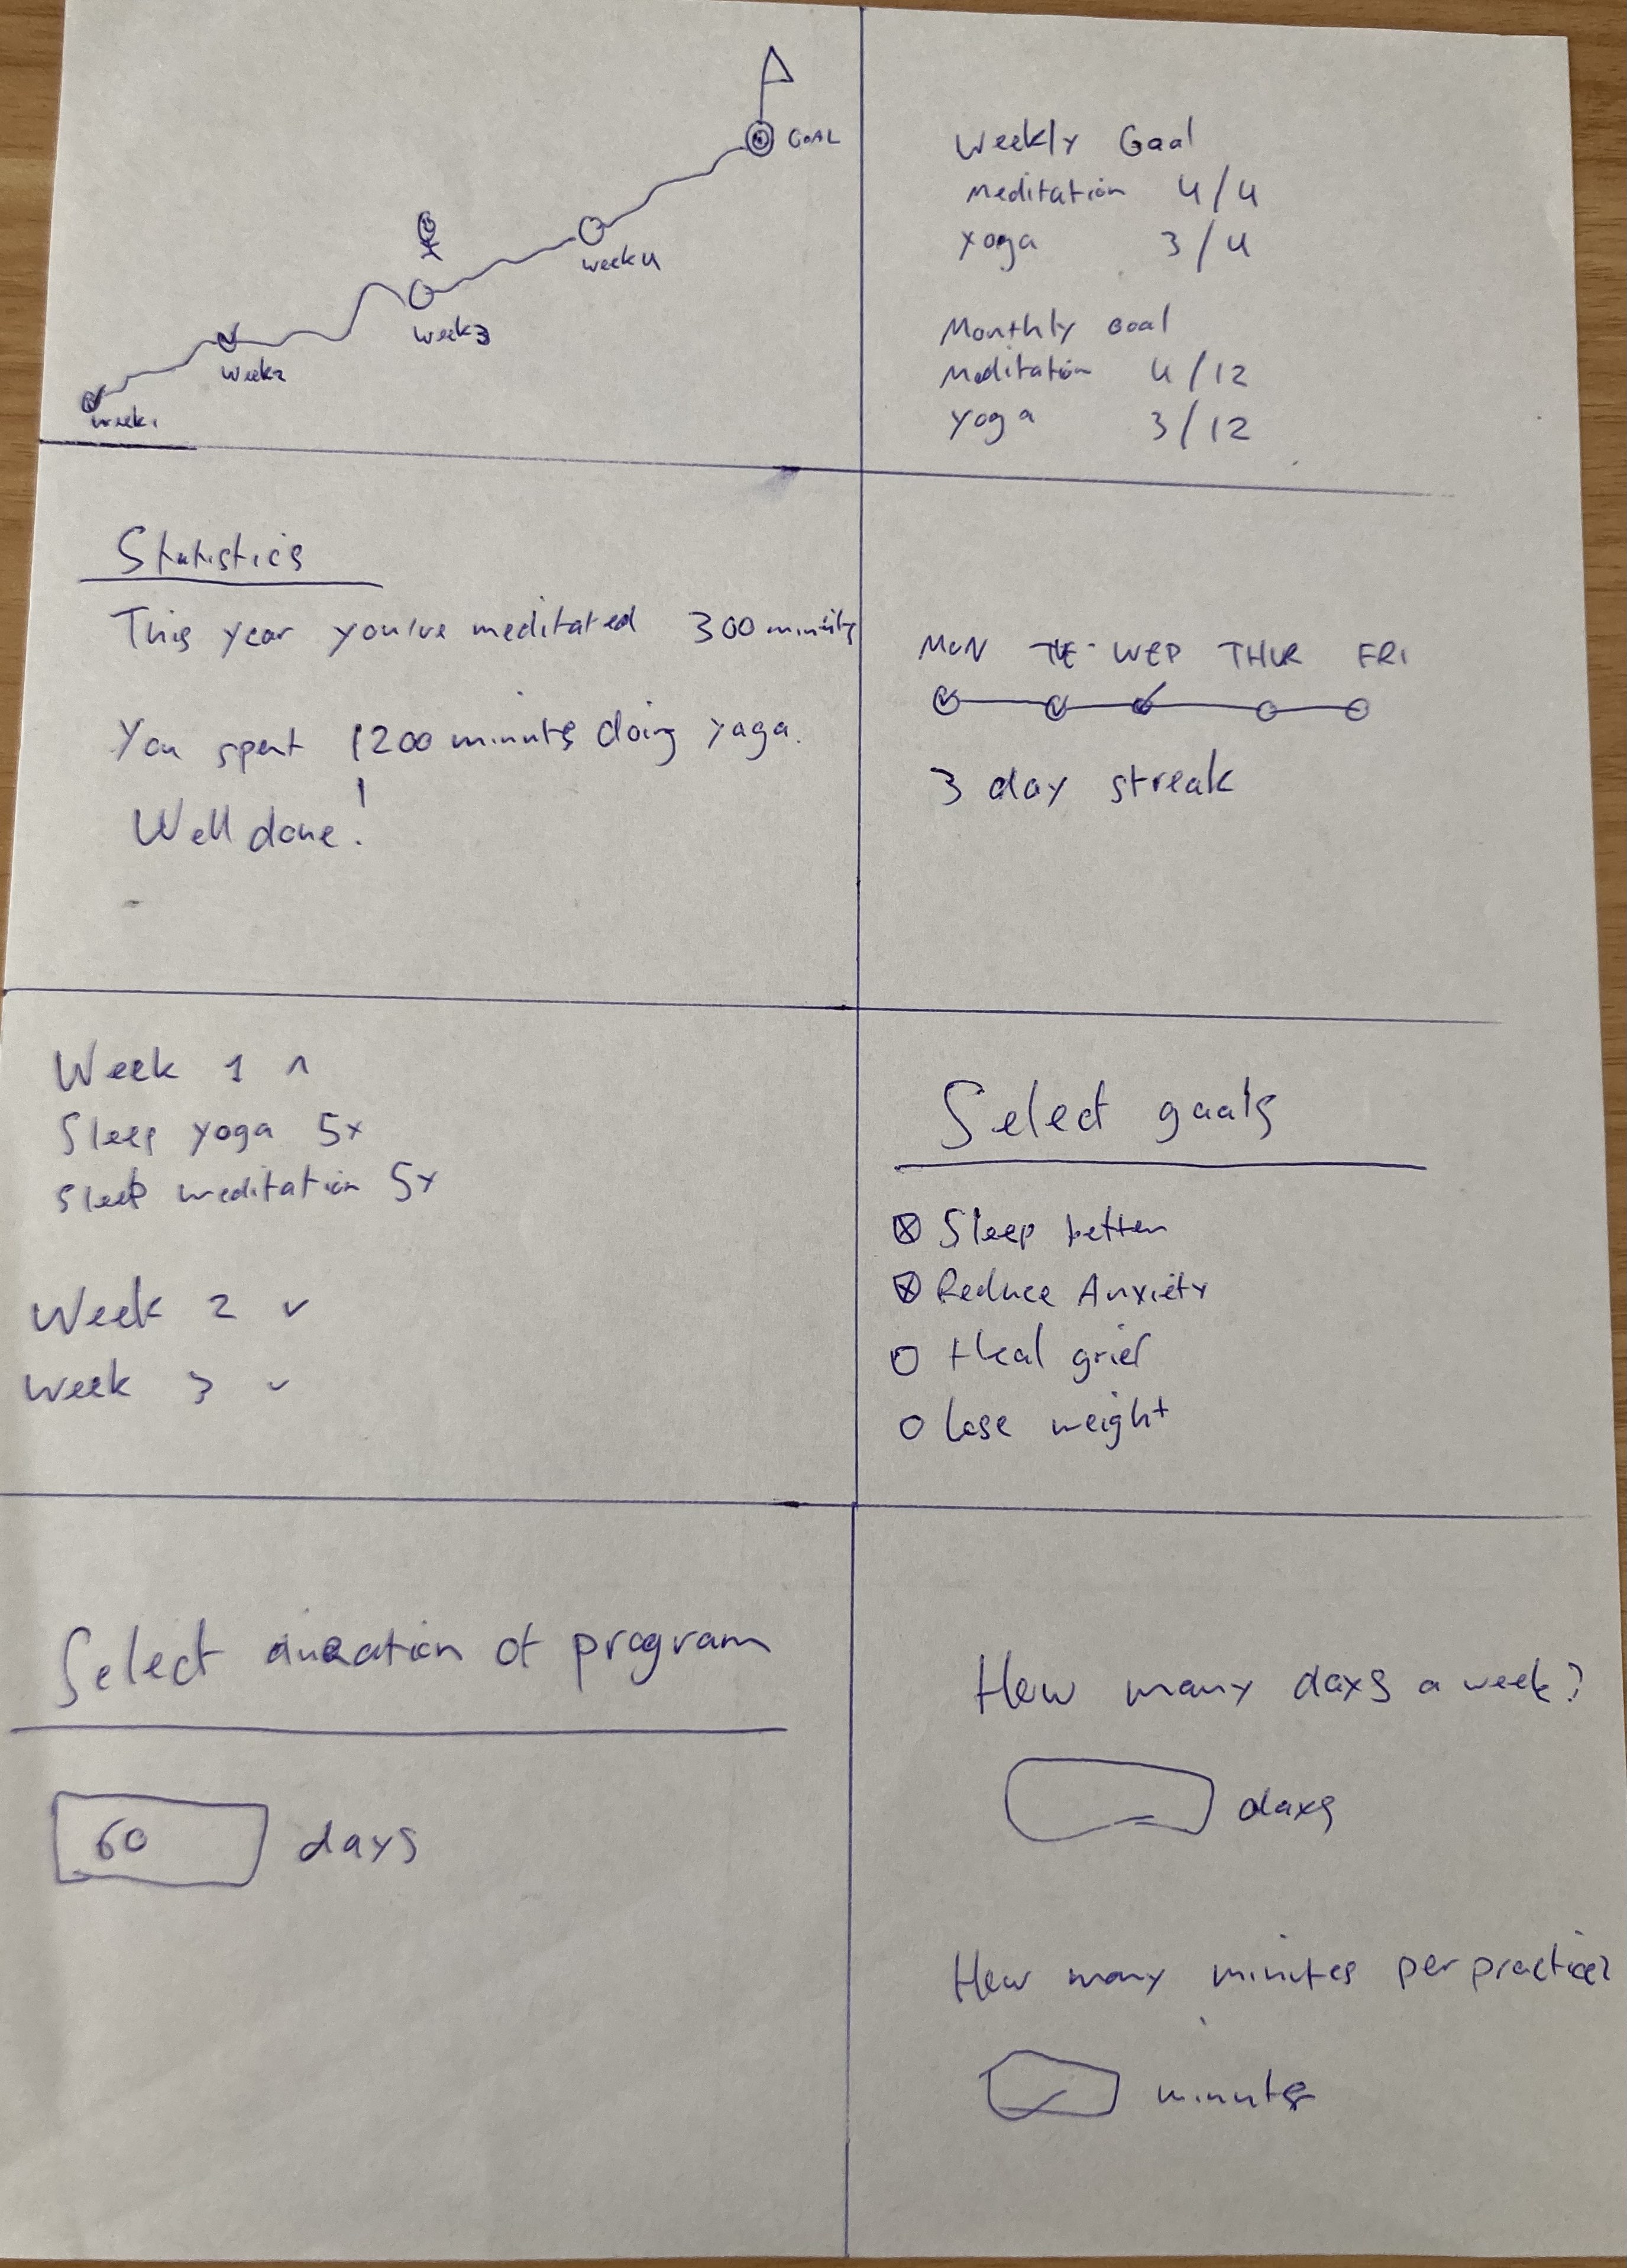 GOAL
week 4
week 3
week 2
week 1
Weekly Goal
Meditation 4/4
Yoga 3/4
Monthly Goal
Meditation 4/12
Yoga 3/12
Statistics
This year you've meditated 300 minutes
You spent 1200 minutes doing yoga.
Well done!
MON TUE WED THUR FRI
3 day streak
Week 1 ^
Sleep yoga 5x
Sleep meditation 5x
Week 2 v
Week 3 v
Select goals
Sleep better
Reduce Anxiety
Heal grief
Lose weight
Select duration of program
60 days
How many days a week?
days
How many minutes per practice?
minutes